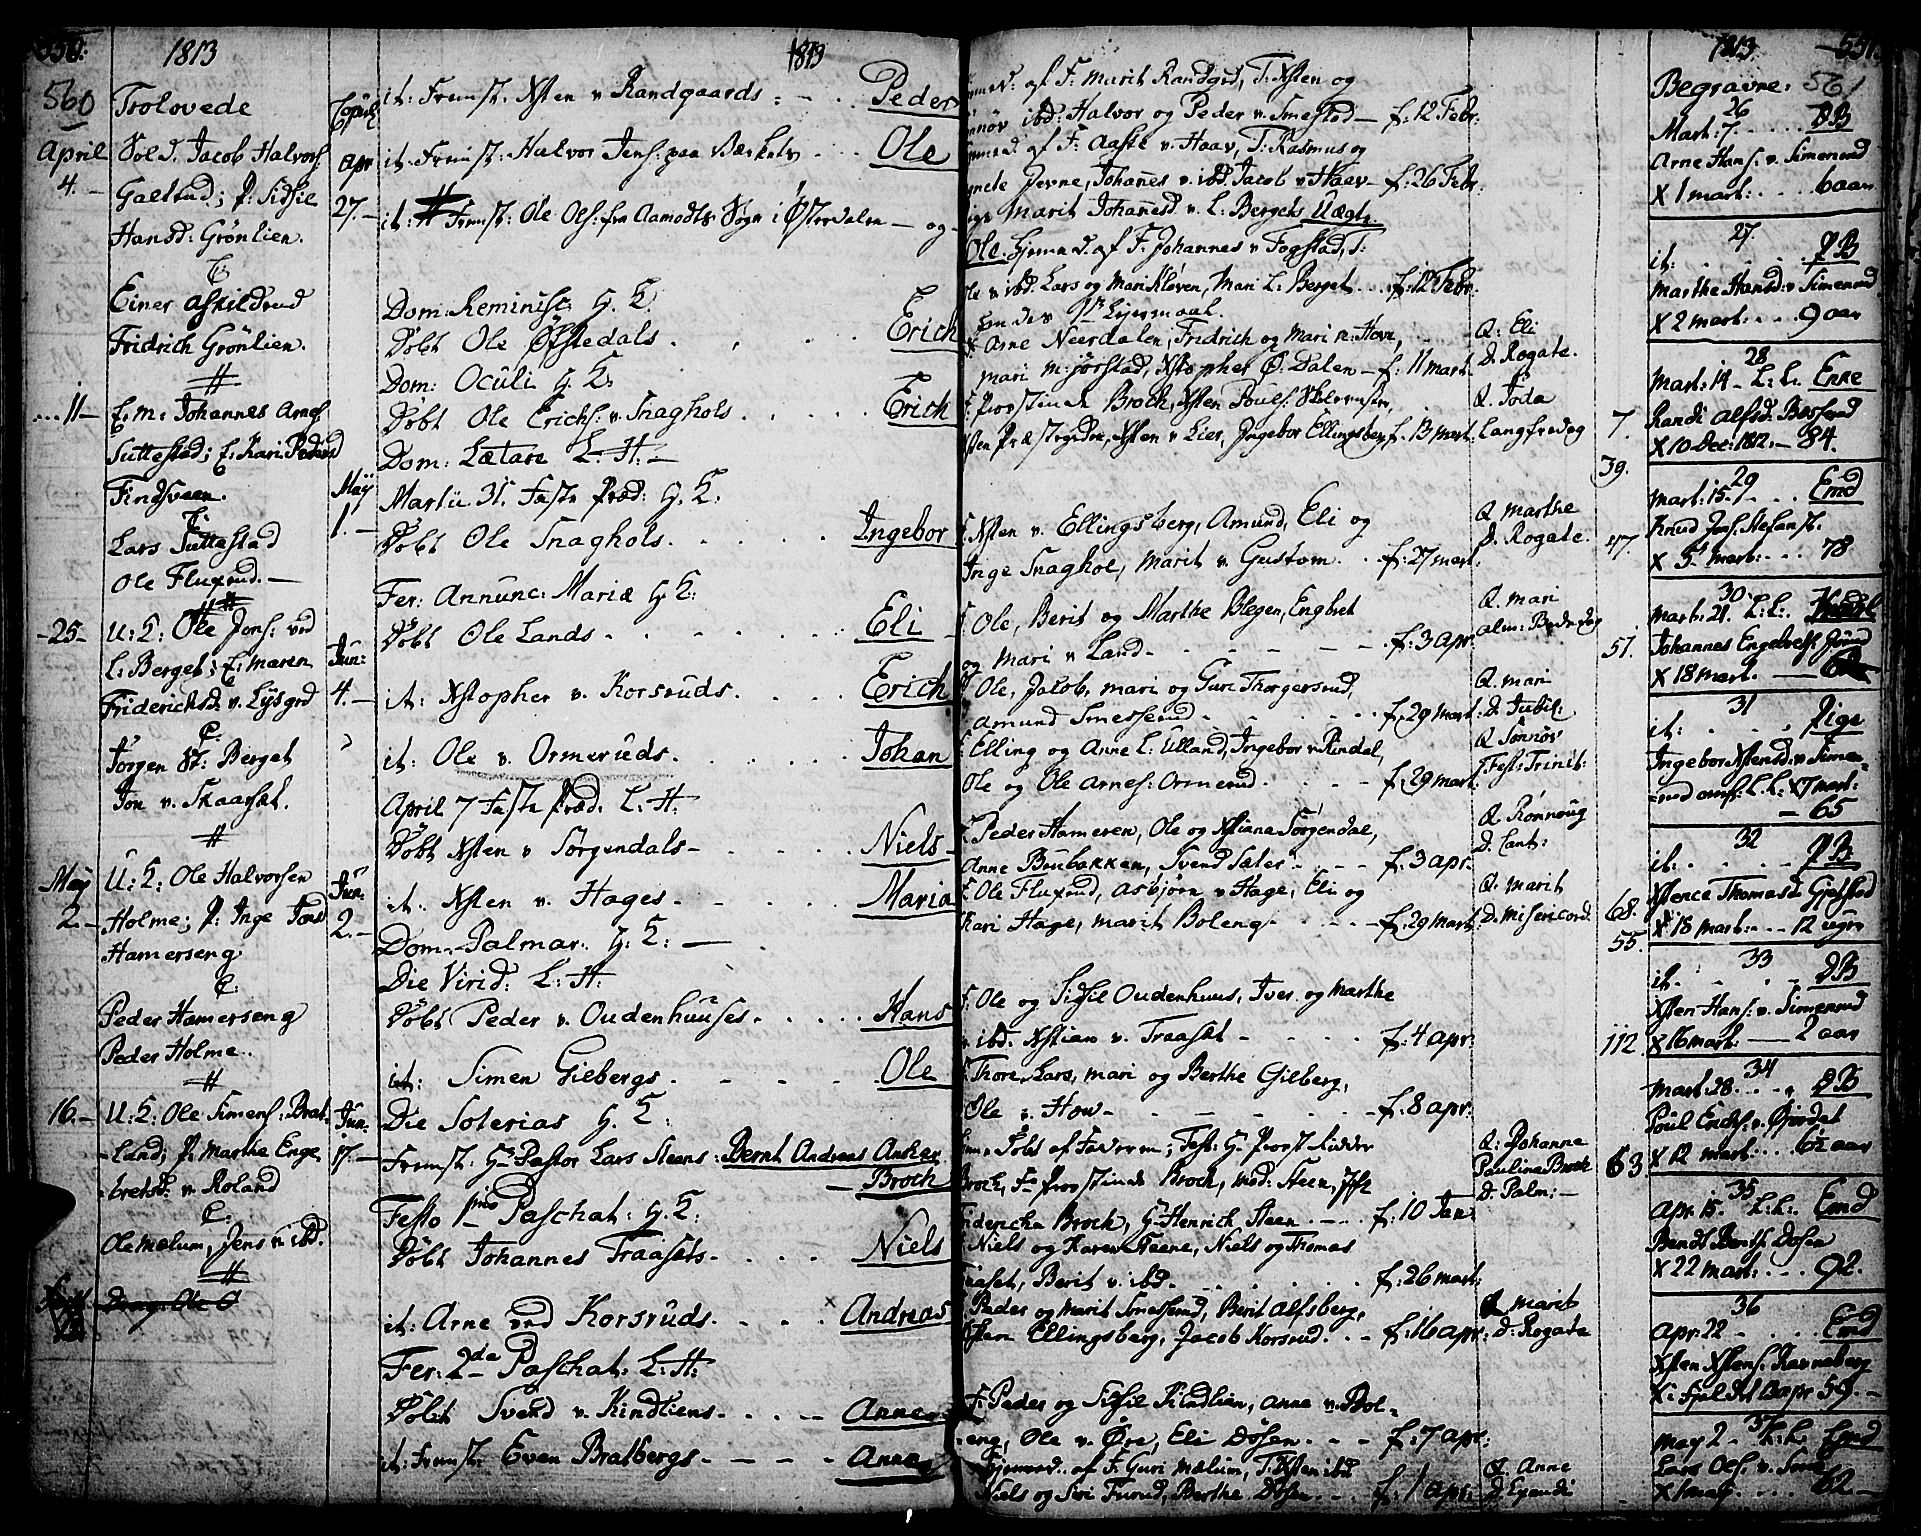 550.
560
1813
Trolovede
Copul.
April
4.
Sold. Jacob Halvors.
Gaestad; P: Sidsil
Hansd: Grönlien.
C:
Einer Askildrud
Fridrich Grönlien.
#
Apr
27.
11
E.m: Johannes Arnes.
Suttestad; E: Kari Pedersd
Findsveen.
C:
Lars Suttestad
Ole Fluxrud.
#
May
1.
25
U: K: Ole Jons: ved
L: Berget; E: Maren
Fridericksd. v. Lysgrd
C:
Jörgen St: Berget
Jon v. Skaarset.
#
Jun:
4.
May
2.
U: K: Ole Halvorsen
Holme; P: Inge Jonsd
Hamerseng
C:
Peder Hamerseng
Peder Holme.
#
Jun:
2.
16.
U: K: Ole Simens: Brat-
Land; P: Marthe Enge-
bretsd: v. Roland
C:
Ole Mælum, Jens v. ibd.
#
Jun:
17.
1813
it: Fremst: Xsten v Randgaards: Peder
it: Fremst: Halvor Jens: paa Bærkelv Ole
it: # Fremst: Ole Ols: fra Aamodts Sogn i Østerdalen og
Dom: Reminisc: G. K.
Döbt Ole Øfstedals Erich
Dom: Oculi G. K.
Döbt Ole Erichs: v. Snaghols Erich
Dom: Lætare L. H.
Martii 31. Faste Præd: G. K.
Döbt Ole Snaghols Ingebor
Fer: Annunc: Mariæ G. K:
Döbt Ole Lands Eli
it: Xstopher v. Korsruds. Erich
it: Ole v. Ormeruds. Johan
April 7 Faste Præd: L. H.
Döbt Xsten v Sörgendals Niels
it: Xsten v. Hages Maria
Dom. Palmar. G. K:
Die Virid: L: H:
Döbt Peder v. Oudenhuuses Hans
it: Simen Giebergs Ole
Die Soterias G. K:
Fremst: Hr Pastor Lars Steens: Bernt Andreas Anker
Broch
Festo 1mo Paschat: G. K:
Döbt Johannes Traasets Niels
it: Arne ved Korsruds Andreas
Fer: 2da Paschat: L: H:
Döbt Svend v. Kindliens Anne
it: Fremst: Even Bratbergs Anne
af F: Marit Randgrd, T: Xsten og
ibd: Halvor og Peder v. Smestad f: 12 Febr.
af F: Aaste v. Haav, T: Rasmus og
Jevne, Johannes v. ibd. Jacob v. Haav f: 26 Febr:
Marit Johannesd v. L: Bergets Uægte.
Ole. hjemed. af F. Johannes v Fogstad, T:
Ole v ibd. Lars og Mari Kloven, Mari L: Berget f: 12 Febr.
hendes 1ste Leyermaal.
Arne Neerdalen, Fridrich og Mari n: Hove,
Mari Mjörstad, Xstopher Ø: Dalen f: 11 Mart.
Q: Eli
D. Rogate.
F. Provstinde Broch, Xsten Pouls:
Xsten Præstegrden, Xsten v Lier, Ingebor Ellingsberg f: 13 Mart:
Q. Joda
Langfredag
7.
39.
F. Xsten v. Ellingsberg, Amund, Eli og
Inge Snaghol, Marit v. Gustom f: 27 Mart.
Q Marthe
D. Rogate.
47.
F. Ole, Berit og Marthe Blegen, Engbret
og Mari v Land f: 3 Apr.
Q. Mari
alm: Bededag
51.
F Ole, Jacob, Mari og Guri Thorgersrud,
Amund Smesserud f: 29 Mart:
Q. Mari
D. Jubil:
F. Elling og Anne L: Ulland, Ingebor v Rindal,
Ole og Ole Arnes: Ormerud f: 29 Mart:
Q Sönnöv
Fest: Trinit:
F Peder Hameren, Ole og Xstiana Sörgendal,
Anne Buebakken, Svend Sater f: 3 Apr.
Q Rönnoug
D. Cant:
F. Ole Fluxrud, Asbjörn v Hage, Eli og
Kari Hage, Marit Boleng f: 29 Mart.
Q. Marit
D. Misericord.
68.
55.
F. Ole og Sidsil Oudenhuus, Iver og Marthe
v. ibd. Xstian v. Traaset f: 4 Apr:
112
F. Thore, Lars, Mari og Berthe Gilberg,
Ole v. Hov f: 8 Apr:
Döbt af Faderen; Test: Hr Provst Ridder
Broch, Fr Provstinde Broch, Mad: Steen,
Fridericha Broch, Hr Henrich Steen f: 10 Jan:
Q: Johanne
Paulina Broch
D. Palm:
63
Niels og Karen Steene, Niels og Thomas
Traaset, Berit v. ibd. f: 26 Mart:
Peder og Marit Smesserud, Berit Alfsberg,
Xsten Ellingsberg, Jacob Korsrud f: 16 Apr:
Q Marit
D: Rogate
F: Peder og Sidsil Kindlien, Anne v. Bol-
eng, Ole v. Øre, Eli Dösen f: 7 Apr:
hjemed. af F. Guri Mælum, T. Xsten ibd
Niels og Siri Furud, Berthe Dösen f: 1 Apr:
Q. Anne
D. Exaudi
1813.
551.
561
Begravne:
26
Mart: 7. DB
Arne Hans: v. Simenrud
X 1 Mart: 6 aar
27.
it: PB
Marthe Hansd: v Simenrud
X 2 Mart: 9 aar
28
Mart: 14 L: L: Enke
Randi Alfsd. Bosserud
X 10 Dec: 1812. 84.
29
Mart: 15. Emd
Knud Jons:
X 5 Mart: 78
30
Mart: 21. L: L:
Johannes Engebrets:
X 18 Mart.
31
it: Pige
Ingebor Xstensd: v. Simen-
rud L: L: X 7 Mart:
65
32
it: PB
Xstence Thomasd. Gjefstad
X 18 Mart: 12 uger
33
it. DB
Xsten Hans: v. Simenrud
X 16 Mart: 2 aar
34
Mart: 28. DB
Poul Erichs: v. Øfredal
X 12 Mart: 6½ aar
35
Apr. 15. L: L: Emd
Bendt Dösen
X 22 Mart: 92.
36
Apr. 22 Emd
Xsten Xstens: Ravnaberg
X i 10 Apr: 59.
37
May 2 L: L: Emd
Lars Ols: v.
X 1 May 62.